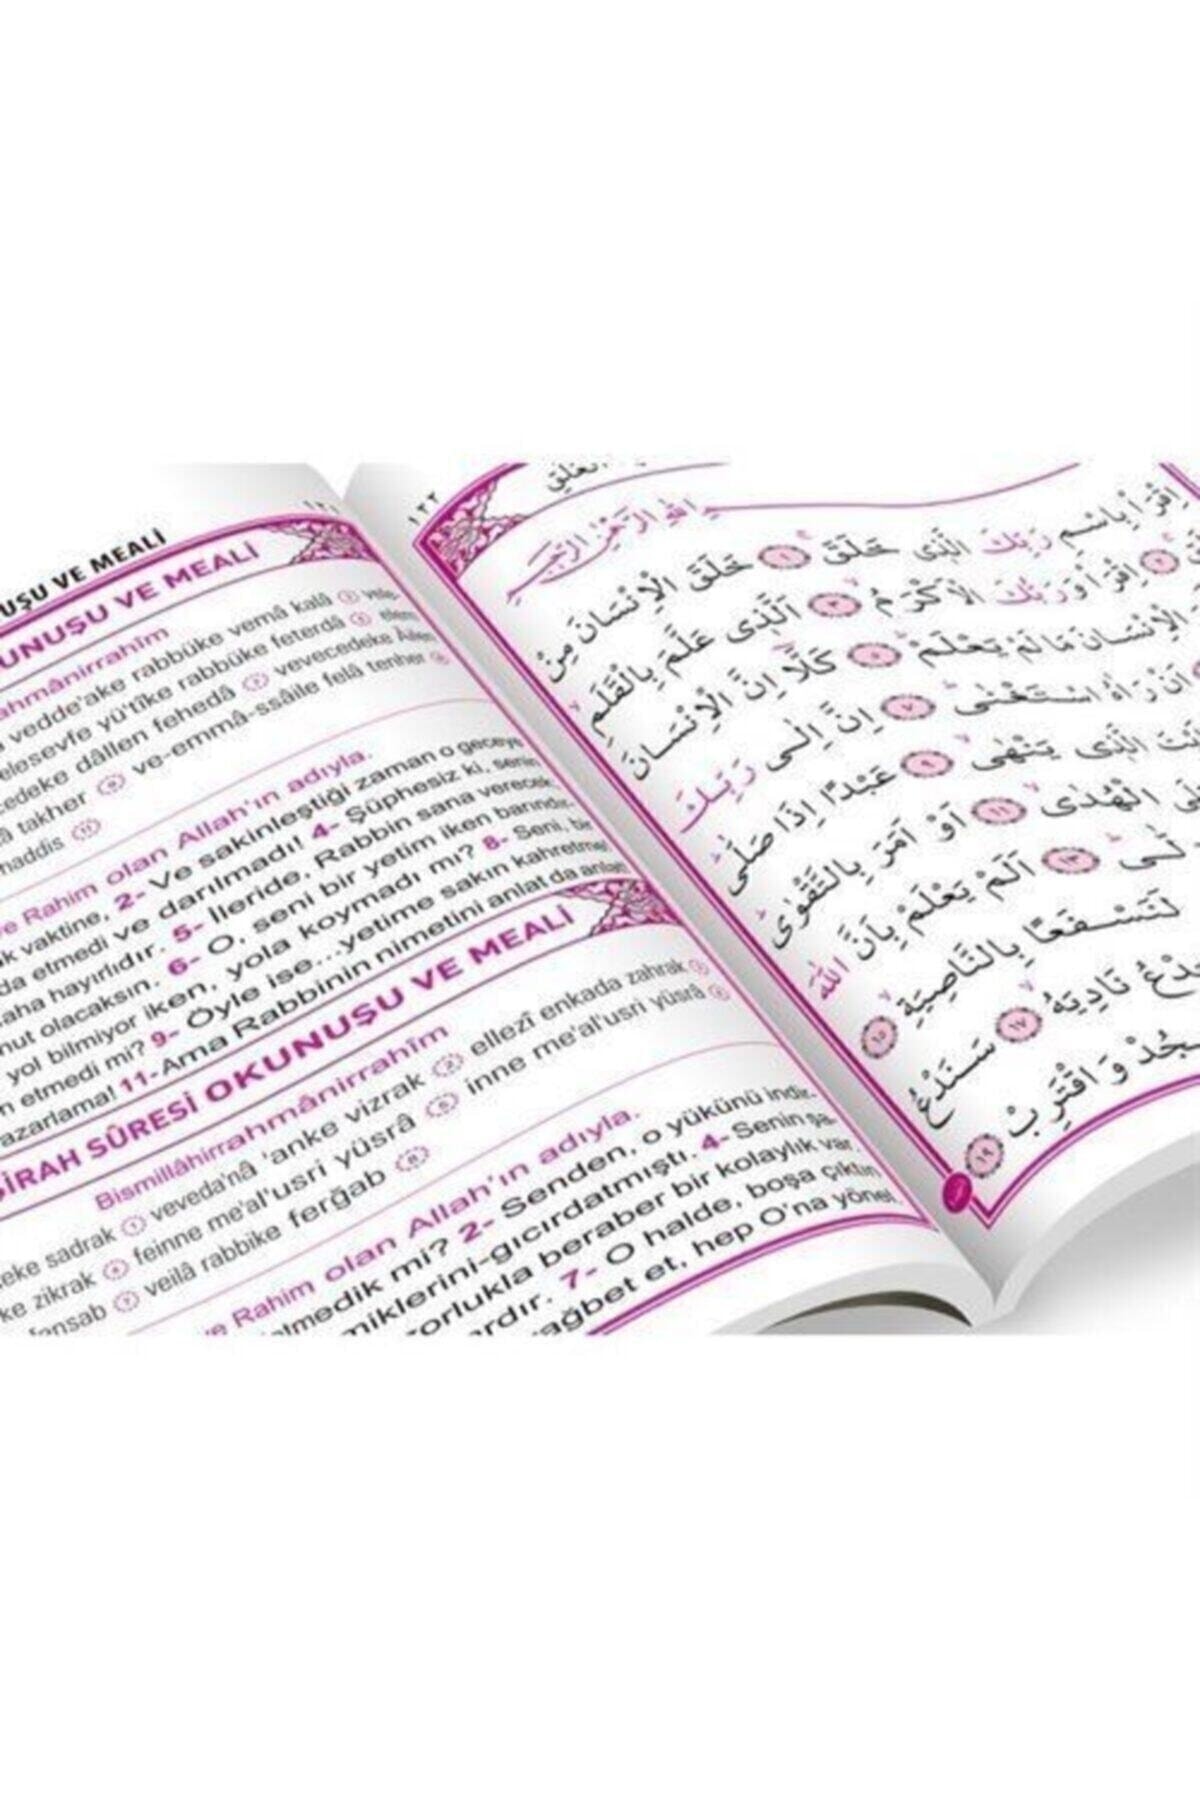 UŞU VE MEALİ
١٢١
UNUŞU VE MEALİ
ahmânirrahîm
vedde'ake rabbüke vemâ kalâ ٣ vele-
elesevfe yü'tîke rabbüke feterdâ ٥ elem
cedeke dâllen fehedâ ٧ vevecedeke Âilen
â takher ٩ ve-emmâ-ssâile felâ tenher
haddis ١١
ve Rahim olan Allah'ın adıyla.
k vaktine, 2- Ve sakinleştiği zaman o geceye
da etmedi ve darılmadı! 4- Şüphesiz ki, senin
aha hayırlıdır. 5- İleride, Rabbin sana verecek
nut olacaksın. 6- O, seni bir yetim iken barındır
yol bilmiyor iken, yola koymadı mı? 8- Seni, bir
n etmedi mi? 9- Öyle ise...yetime sakın kahretme!
azarlama! 11- Ama Rabbinin nimetini anlat da anlat
ŞİRAH SÛRESİ OKUNUŞU VE MEALİ
Bismillâhirrahmânirrahîm
eke sadrak ١ veveda'nâ 'anke vizrak ٢ ellezî enkada zahrak ٣
ke zikrak ٤ feinne me'al'usri yüsrâ ٥ inne me'al'usri yüsrâ ٦
fensab ٧ veilâ rabbike ferğab ٨
ve Rahim olan Allah'ın adıyla.
etmedik mi? 2- Senden, o yükünü indir
miklerini-gıcırdatmıştı. 4- Senin şa-
orlukla beraber bir kolaylık var.
ardır. 7- O halde, boşa çıktın
ağbet et, hep O'na yönel.
١٢٢
الْعَلَقِ
اللّٰهِ الرَّحْمٰنِ الرَّحِيمِ
اِقْرَأْ بِاسْمِ رَبِّكَ الَّذِى خَلَقَ ١ خَلَقَ الْاِنْسَانَ مِنْ
٢ اِقْرَأْ وَرَبُّكَ الْاَكْرَمُ ٣ اَلَّذِى عَلَّمَ بِالْقَلَمِ
الْاِنْسَانَ مَا لَمْ يَعْلَمْ ٥ كَلَّا اِنَّ الْاِنْسَانَ
اَنْ رَاٰهُ اسْتَغْنٰى ٧ اِنَّ اِلٰى رَبِّكَ
الَّذِى يَنْهٰى ٩ عَبْدًا اِذَا صَلّٰى
الْهُدٰى ١١ اَوْ اَمَرَ بِالتَّقْوٰى
١٣ اَلَمْ يَعْلَمْ بِاَنَّ اللّٰهَ
لَنَسْفَعًا بِالنَّاصِيَةِ ١٥
نَادِيَهُ ١٧ سَنَدْعُ
وَاقْتَرِبْ ١٩